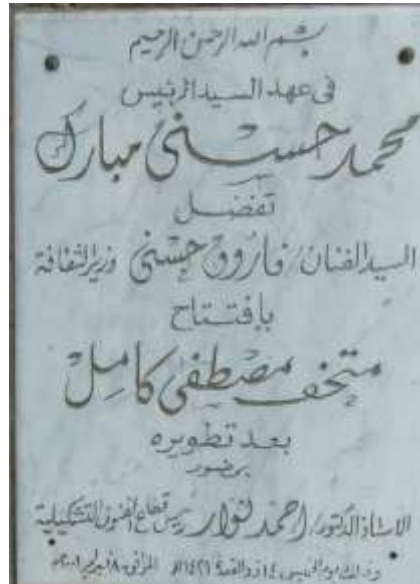 بسم الله الرحمن الرحيم
فى عهد السيد الرئيس
محمد حسنى مبارك
تفضل
السيد الفنان / فاروق حسنى وزير الثقافة
بإفتتاح
متحف مصطفى كامل
بعد تطويره
بحضور
الاستاذ الدكتور / احمد نوار رئيس قطاع الفنون التشكيلية
الخميس ١٤ ذو القعدة ١٤٢١هـ الموافق ٨ فبراير ٢٠٠١م